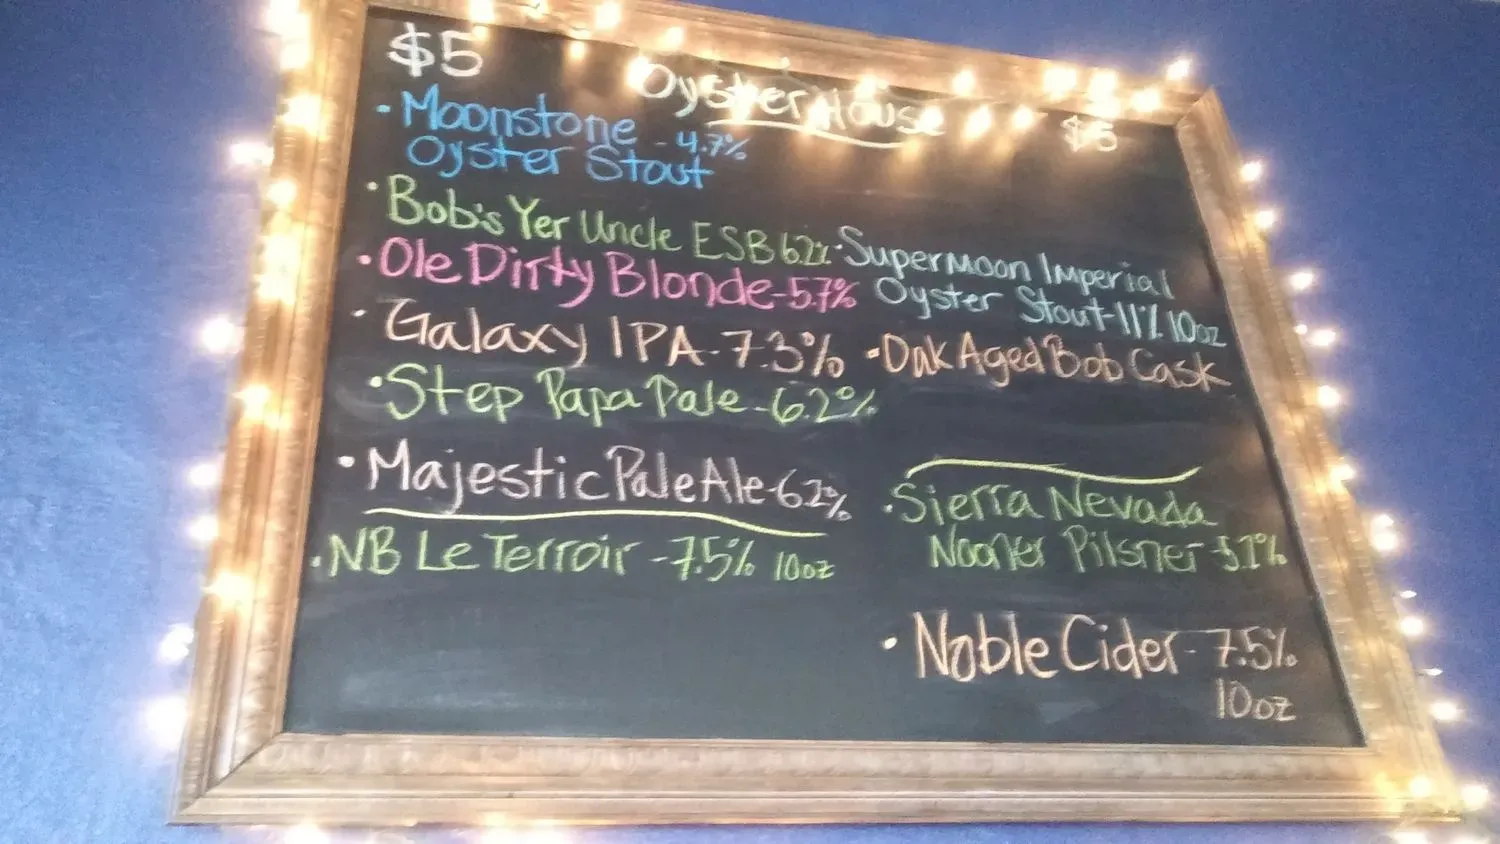 $5
Oyster House
$5
• Moonstone - 4.7%
Oyster Stout
• Bob's Yer Uncle ESB 6.2%
• Ole Dirty Blonde - 5.7%
• Galaxy IPA - 7.3%
• Step Papa Pale - 6.2%
• Majestic Pale Ale - 6.2%
• NB Le Terroir - 7.5% 10oz
• Supermoon Imperial
Oyster Stout - 11% 10oz
• Oak Aged Bob Cask
• Sierra Nevada
Nooner Pilsner -
• Noble Cider - 7.5%
10oz